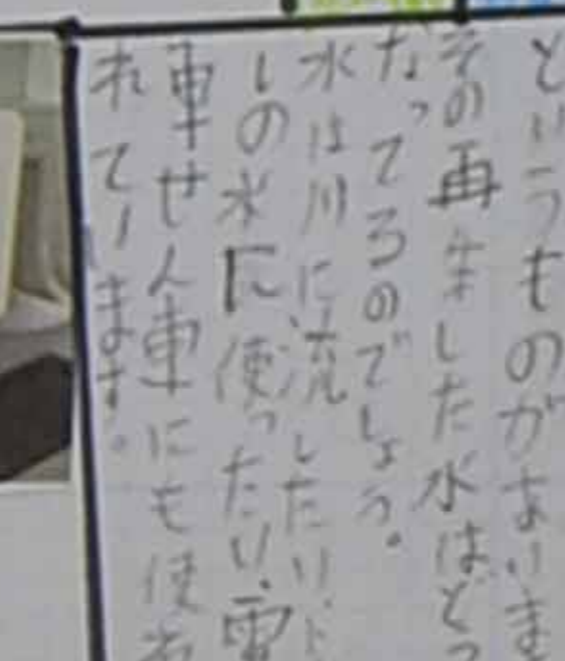 というものがありま
その再生した水はどう
なってるのでしょう。
水は川に流したり、ト
しの水に使ったり、電
車せん車にも使わ
れています。